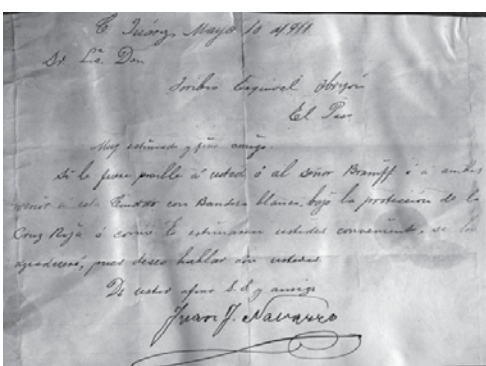 C. Juárez, Mayo 10 de 1911
Sr. Lic. Don
Toribio Esquivel Obregón
El Paso
Muy estimado y fino amigo:
Si le fuere posible á usted ó al señor Braniff ó á ambos
venir á esta Ciudad con Bandera blanca, bajo la protección de la
Cruz Roja ó como lo estimaren ustedes conveniente, se los
agradeceré, pues deseo hablar con ustedes.
De usted afmo S.S. y amigo
Juan J. Navarro